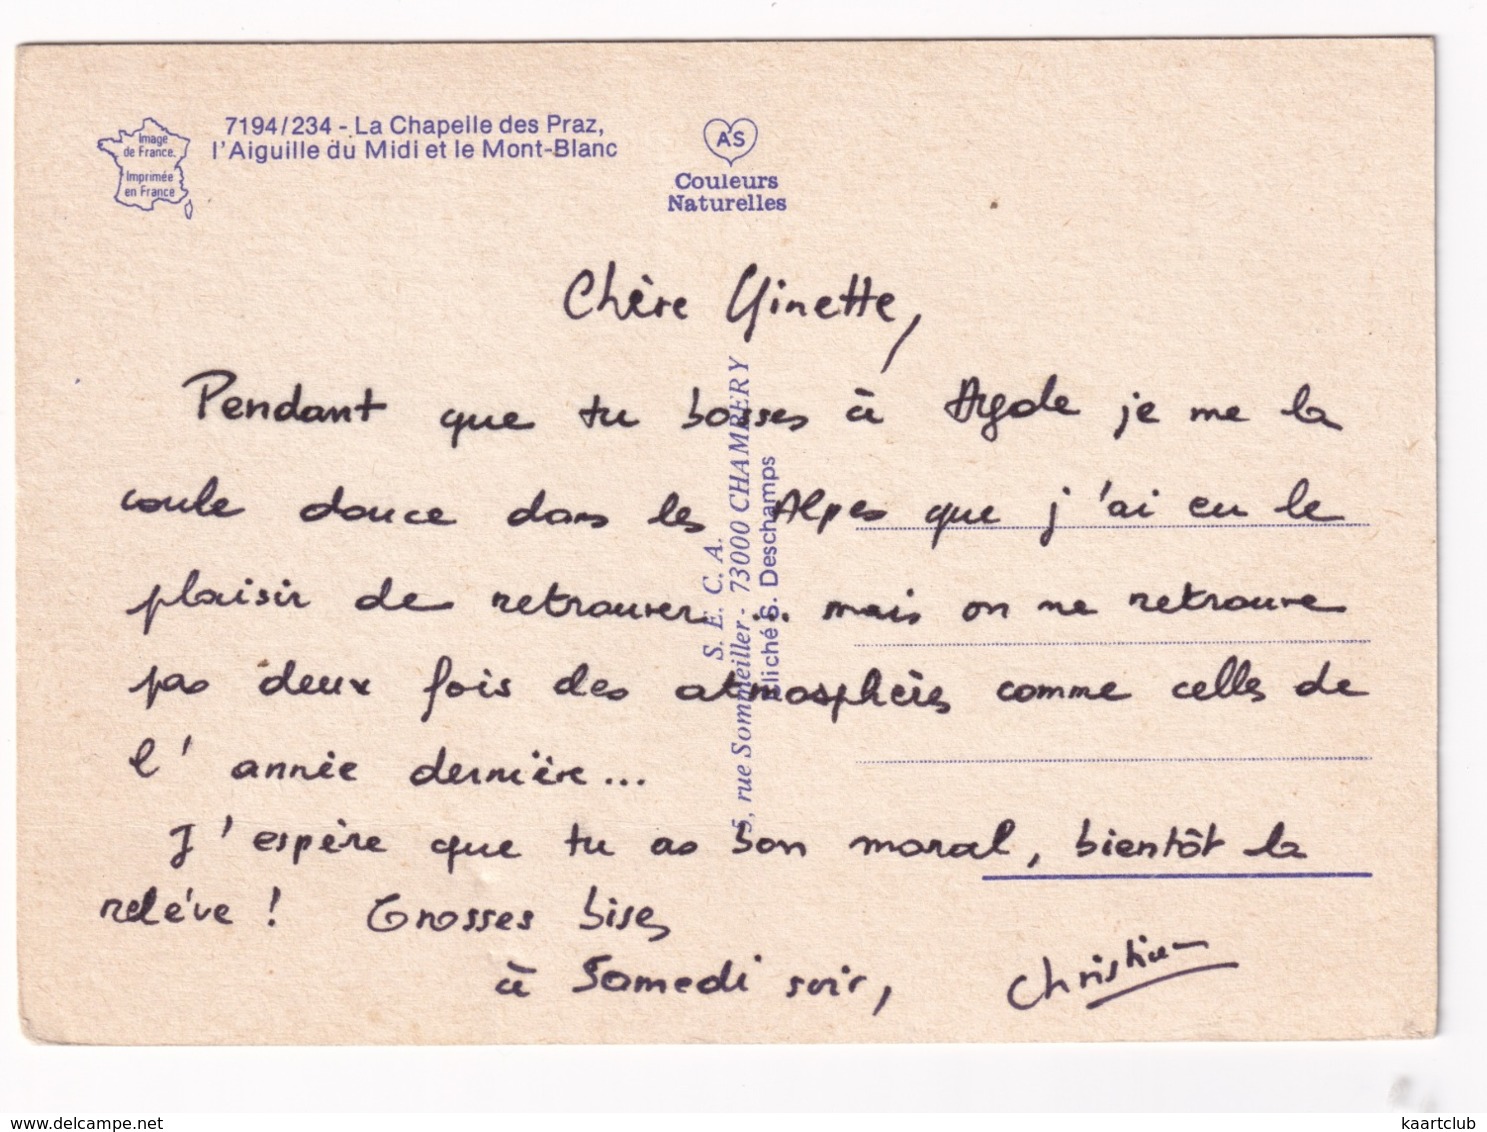 Image
de France.
Imprimée
en France
7194/234 - La Chapelle des Praz,
l'Aiguille du Midi et le Mont-Blanc
AS
Couleurs
Naturelles
Chère Ginette,
Pendant que tu bosses à Agde je me la
coule douce dans les Alpes que j'ai eu le
plaisir de retrouver... mais on ne retrouve
pas deux fois des atmosphères comme celles de
l'année dernière...
J'espère que tu as bon moral, bientôt la
relève ! Grosses bises
à Samedi soir, Christian
S. E. C. A.
5, rue Sommeiller - 73000 CHAMBERY
Cliché S. Deschamps
www.delcampe.net
kaartclub